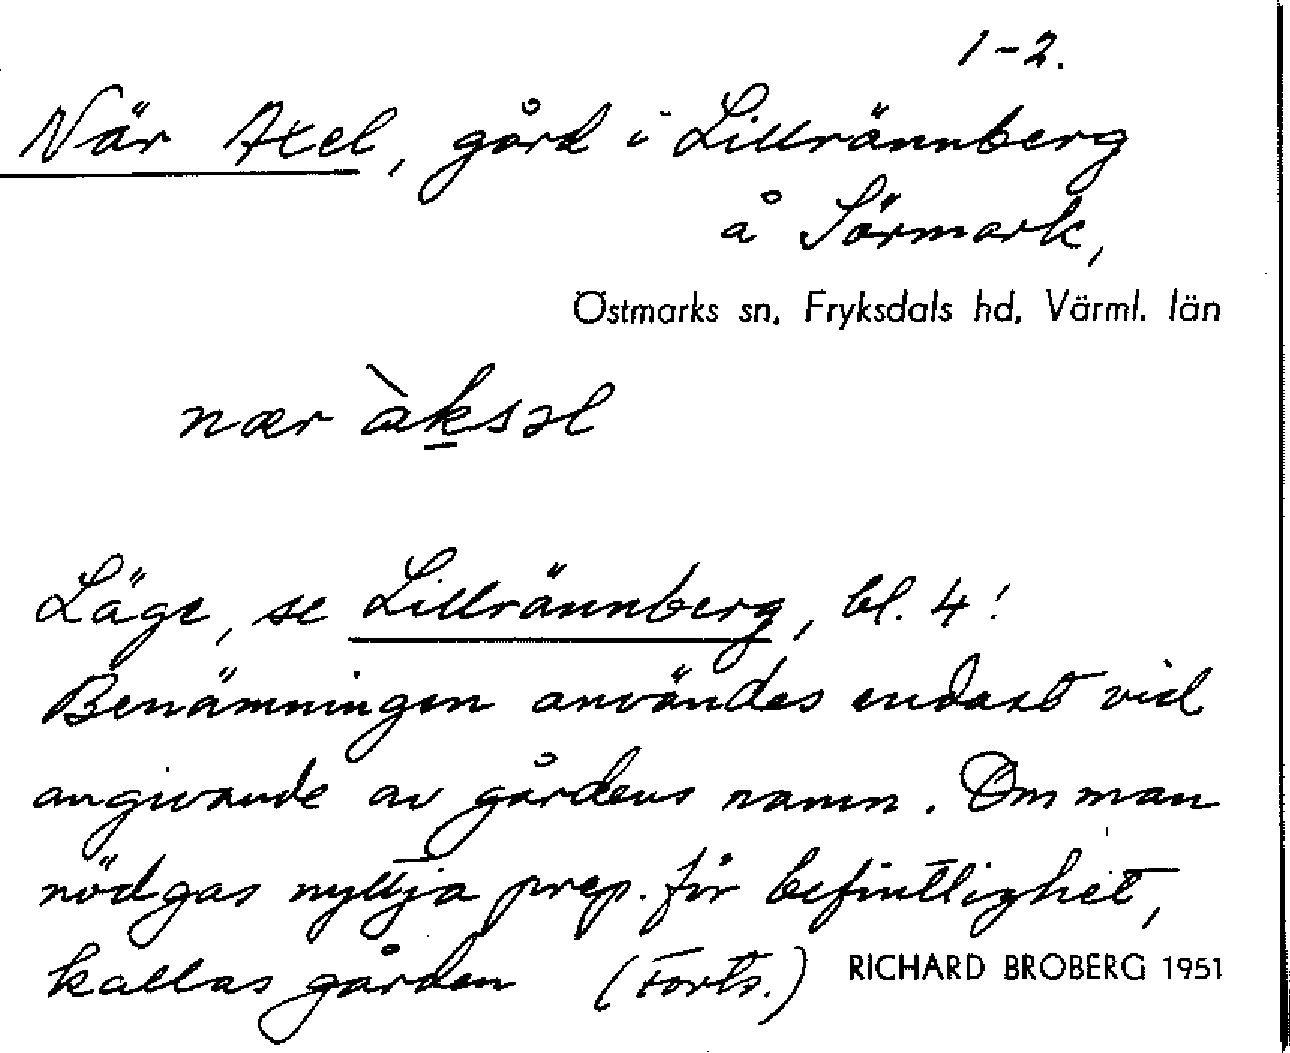 1-2.
När Axel, gård i Lillrännberg
å Sörmark,
Östmarks sn, Fryksdals hd, Värml. län
nær àksəl
Läge, se Lillrännberg, bl. 4!
Benämningen användes endast vid
angivande av gårdens namn. Om man
nödgas nyttja prep. för befintlighet,
kallas gården (Forts.) RICHARD BROBERG 1951